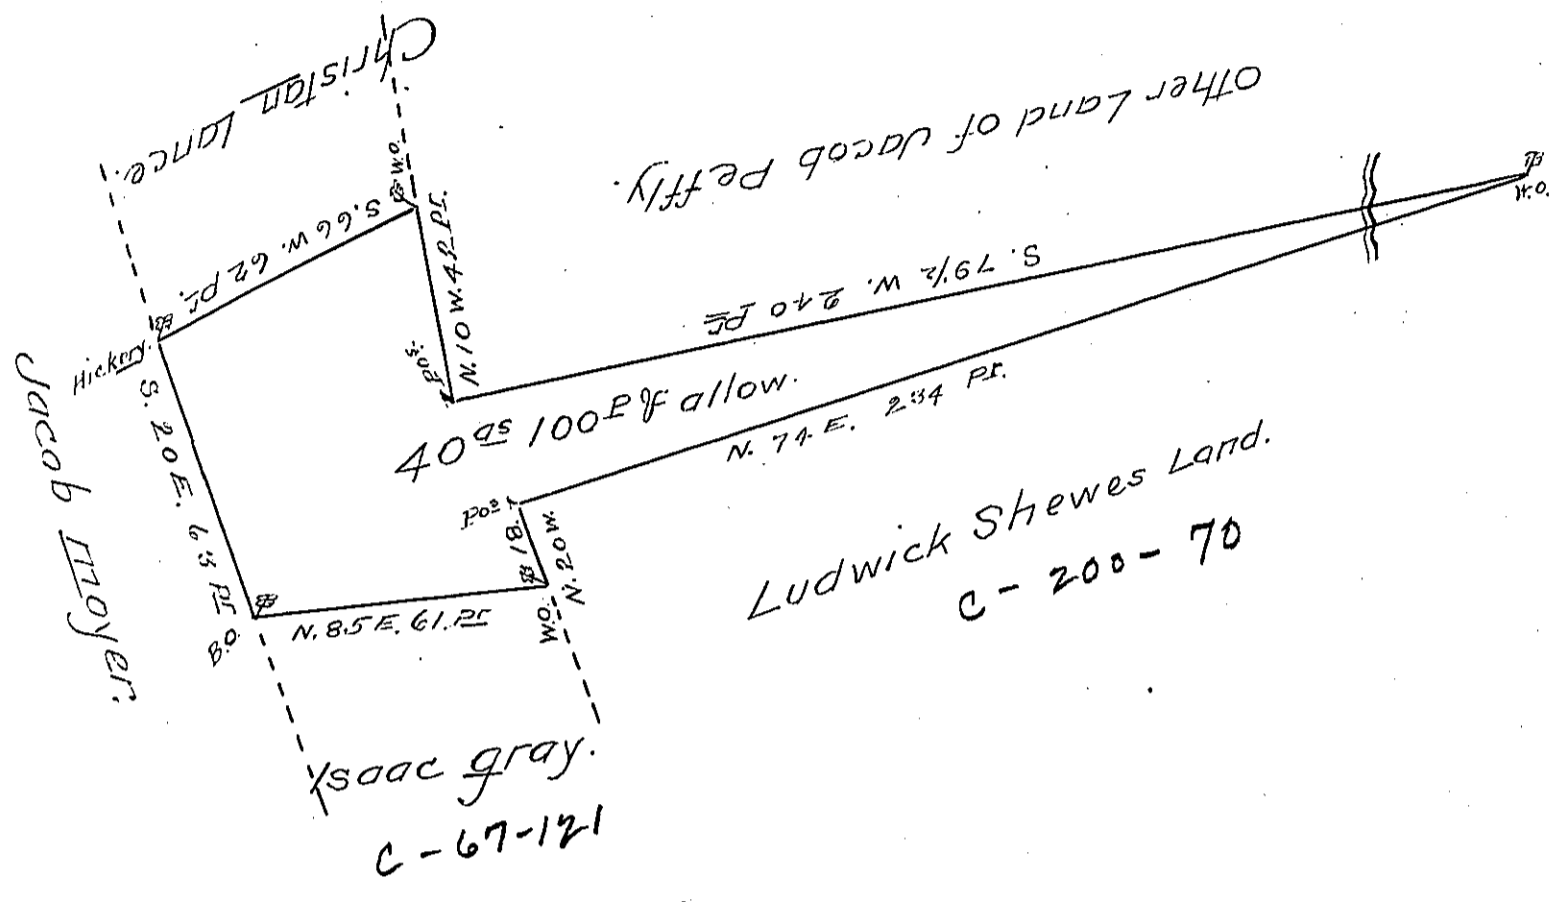 Christan Lance.
Other Land of Jacob Peffly.
W.O.
W.O.
S. 66 W. 62 pr.
N. 10 W. 43 pr.
S. 79½ W. 240 pr
Hickery.
Pos:
Jacob Moyer.
S. 20 E. 63 Pr
40 as 100 P & allow.
N. 74 E. 234 Pr.
Pos
18.
N. 20 W.
W.O.
B.O.
N. 85 E. 61. Pr
Ludwick Shewes Land.
C - 200 - 70
Isaac Gray.
C - 67 - 121